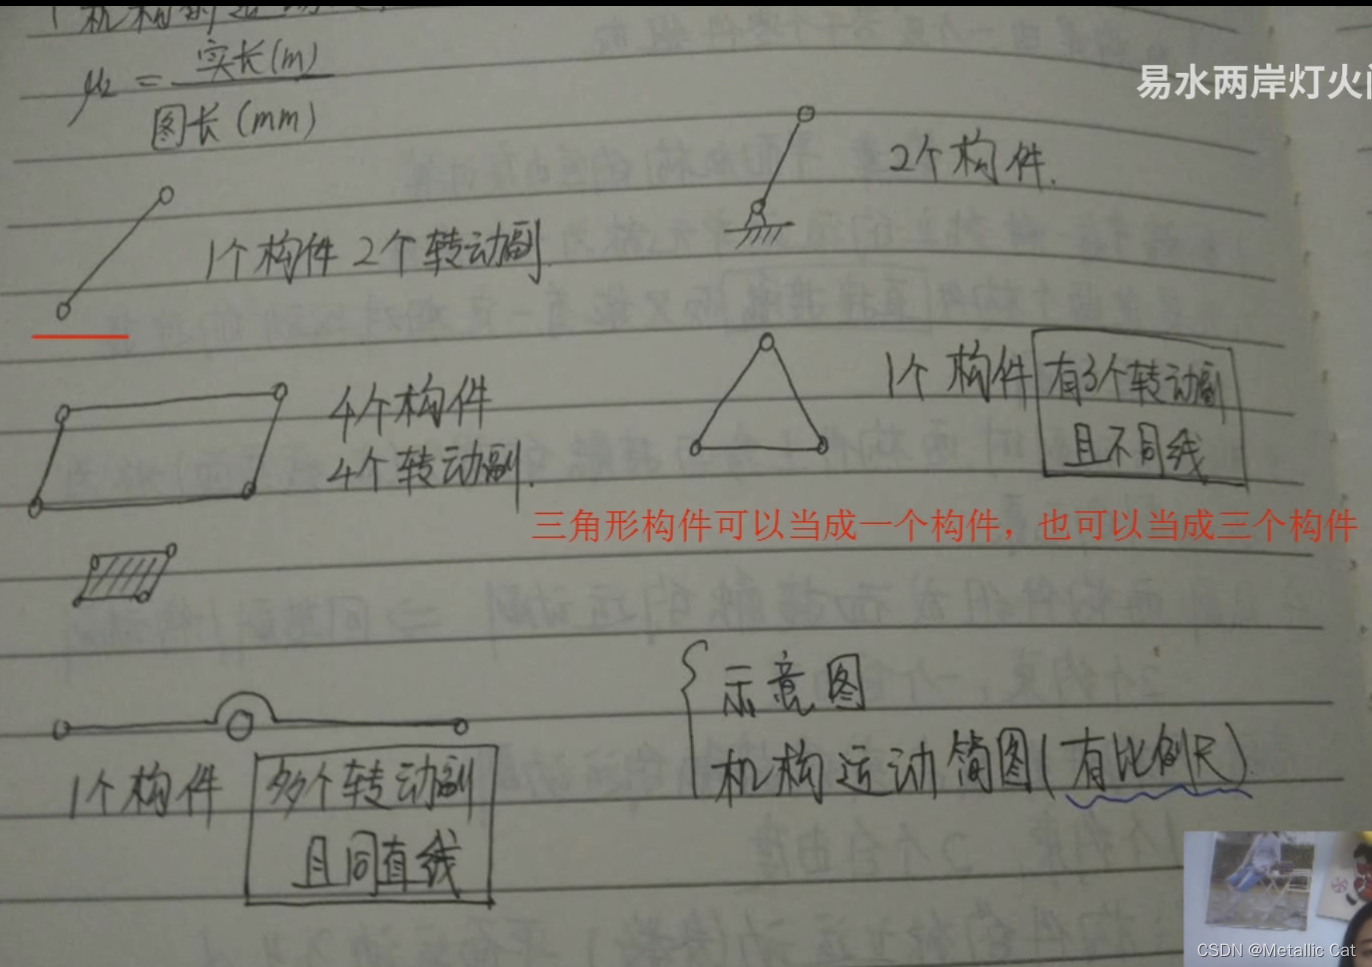 机构的运动
μL = 实长(m)
图长(mm)
易水两岸灯火
2个构件.
1个构件 2个转动副
4个构件
4个转动副.
1个构件 有3个转动副
且不同线
三角形构件可以当成一个构件，也可以当成三个构件
示意图
机构运动简图(有比例尺)
1个构件 多个转动副
且同直线
CSDN @Metallic Cat